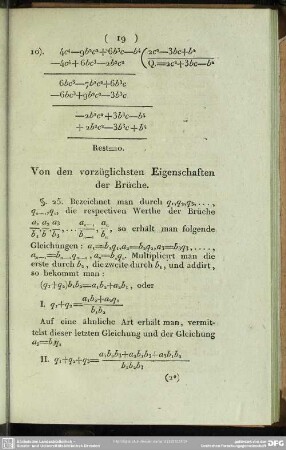 ( 19 )
10). 4c⁴—9b²c²+6b³c—b⁴ (2c²—3bc+b²
—4c⁴+6bc³—2b²c² Q.=2c²+3bc—b²
6bc³—7b²c²+6b³c
—6bc³+9b²c²—3b³c
—2b²c²+3b³c—b⁴
+ 2b²c²—3b³c+b⁴
Rest=0.
Von den vorzüglichsten Eigenschaften
der Brüche.
§. 25. Bezeichnet man durch q₁,q₂,q₃,...,
die respectiven Werthe der Brüche
so erhält man folgende
Gleichungen: a₁=b₁q₁,a₂=b₂q₂,a₃=b₃q₃,....,
Multiplicirt man die
erste durch b₂, die zweite durch b₁, und addirt,
so bekommt man:
(q₁+q₂)b₁b₂=a₁b₂+a₂b₁, oder
I. q₁+q₂=(a₁b₂+a₂b₁)/(b₁b₂)
Auf eine ähnliche Art erhält man, vermit-
telst dieser letzten Gleichung und der Gleichung
a₃=b₃q₃
II. q₁+q₂+q₃=(a₁b₂b₃+a₂b₁b₃+a₃b₁b₂)/(b₁b₂b₃)
(2*)